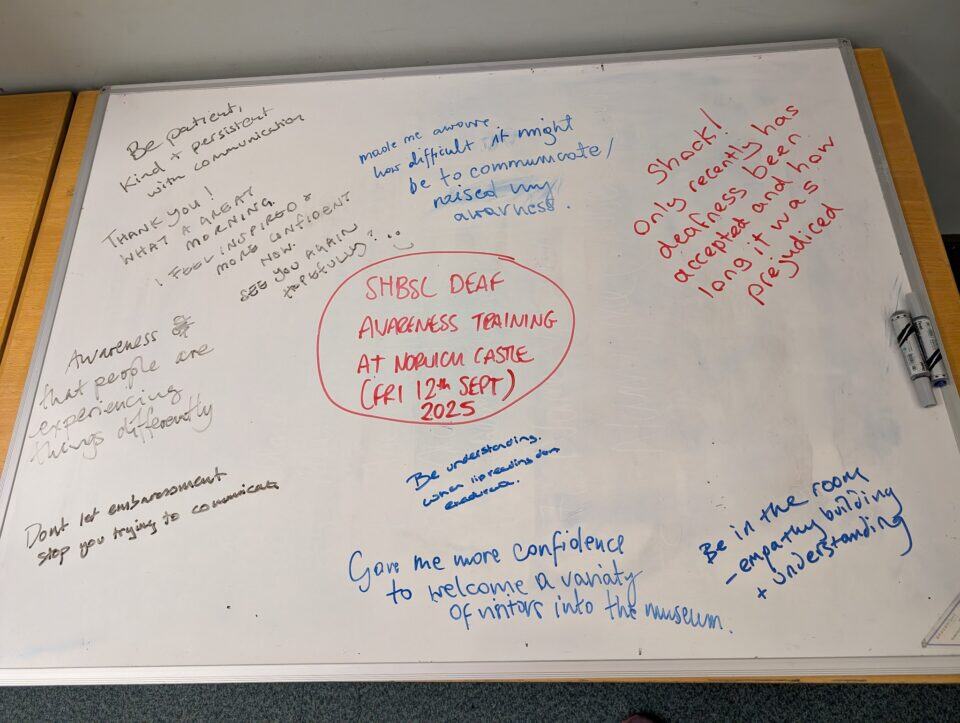 Be patient,
Kind + persistent
with communication
THANK YOU!
WHAT A GREAT
MORNING.
I FEEL INSPIRED &
MORE CONFIDENT
NOW.
SEE YOU AGAIN
HOPEFULLY?
made me aware
how difficult it might
be to communicate/
raised my
awarness.
Shock!
Only recently has
deafness been
accepted and how
long it was
prejudiced
SHBSL DEAF
AWARENESS TRAINING
AT NORWICH CASTLE
(FRI 12th SEPT)
2025
Awareness
that people are
experiencing
things differently
Dont let embarassment
stop you trying to comunicate
Be understanding.
When lipreading
Gave me more confidence
to welcome a variaty
of visitors into the museum.
Be in the room
- empathy building
+ understanding